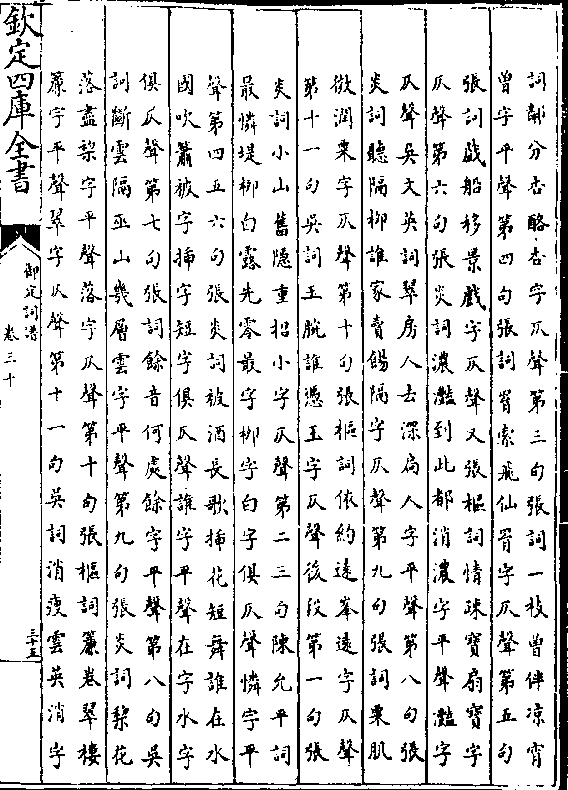 詞鄰分杏酪杏字仄聲第三句張詞一枝曾伴凉宵
曾字平聲第四句張詞罥索飛仙罥字仄聲第五句
張詞戯船移景戯字仄聲又張樞詞情疎寶扇寶字
仄聲第六句張炎詞濃灩到此都消濃字平聲灩字
仄聲吳文英詞翠房人去深扄人字平聲第八句張
炎詞聽隔柳誰家賣餳隔字仄聲第九句張詞栗肌
微潤栗字仄聲第十句張樞詞依約遠峯遠字仄聲
第十一句吳詞玉腕誰憑玉字仄聲後段第一句張
炎詞小山舊隱重招小字仄聲第二三句陳允平詞
最憐堤柳白露先零最字柳字白字俱仄聲憐字平
聲第四五六句張炎詞被酒長歌揷花短舞誰在水
國吹簫被字揷字短字俱仄聲誰字平聲在字水字
俱仄聲第七句張詞餘音何處餘字平聲第八句吳
詞斷雲隔巫山幾層雲字平聲第九句張炎詞棃花
落盡棃字平聲落字仄聲第十句張樞詞簾卷翠樓
簾字平聲翠字仄聲第十一句吳詞消瘦雲英消字
欽定四庫全書
御定詞譜
卷三十
三十五